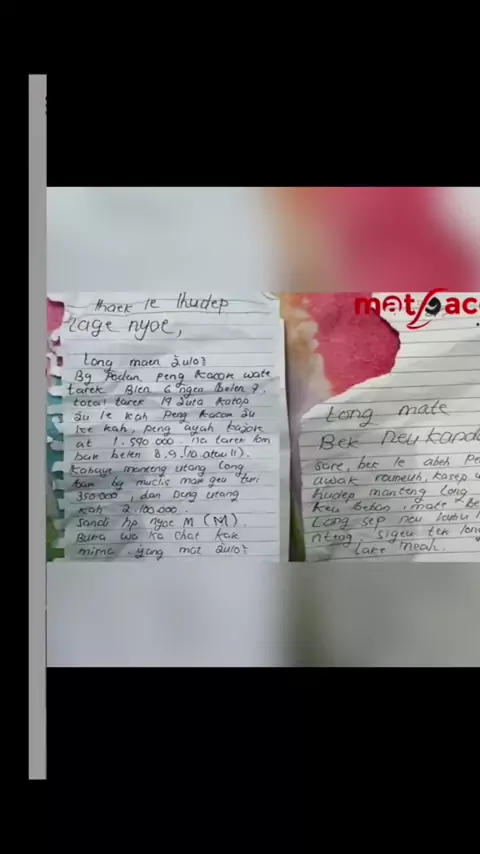 thack le lhudep
lage nyoe,
Long maen Zulo?
By Podan peng kacok wate
tarek Blen 6 ngen belen 7.
total tarek 19 Juta katop
Ju le kah peng kacok Ju
lee kah, peng ayah kajok
at 1.590.000. na tarek lom
bak belen 8.9.(10 atau 11).
manteng utang long
bak by muclis
350.000, dan peng utang
kah 2.100.000.
Sandi hp nyoe M (M).
Buka wa ka chat kak
mirna. yang mat Zulo?
met ac
Long mate
Bek neu
sare, bek le abeh
awak roumeuh, kasep
hudep manteng Long
keu beban, mate
Long sep neu
nteng. sigeu tek
lake meah.